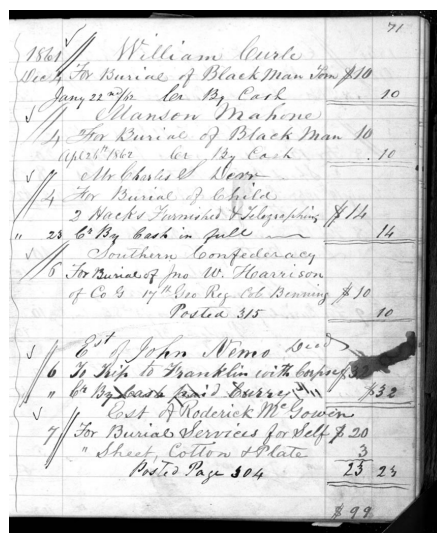 71
1861 William Curle
Dec 4 For Burial of Black Man Tom $10
Jany 22nd/62 Cr By Cash 10
Manson Mahone
4 For Burial of Black Man 10
Apl 26th 1862 Cr By Cash 10
Mr Charles S Derr
4 For Burial of Child
2 Hacks Furnished & Telegraphing $14
" 23 Cr By Cash in full 14
Southern Confederacy
6 For Burial of Jno W. Harrison
of Co G 17th Geo Reg Col Benning $10
Posted 315 10
Est of John Nemo Decd
6 To Trip to Franklin with Corpse $32
" Cr By Cash paid Curry $32
Est of Roderick McGowin
7 For Burial Services for Self $20
" Sheet, Cotton & Plate 3
Posted Page 304 23 23
$99